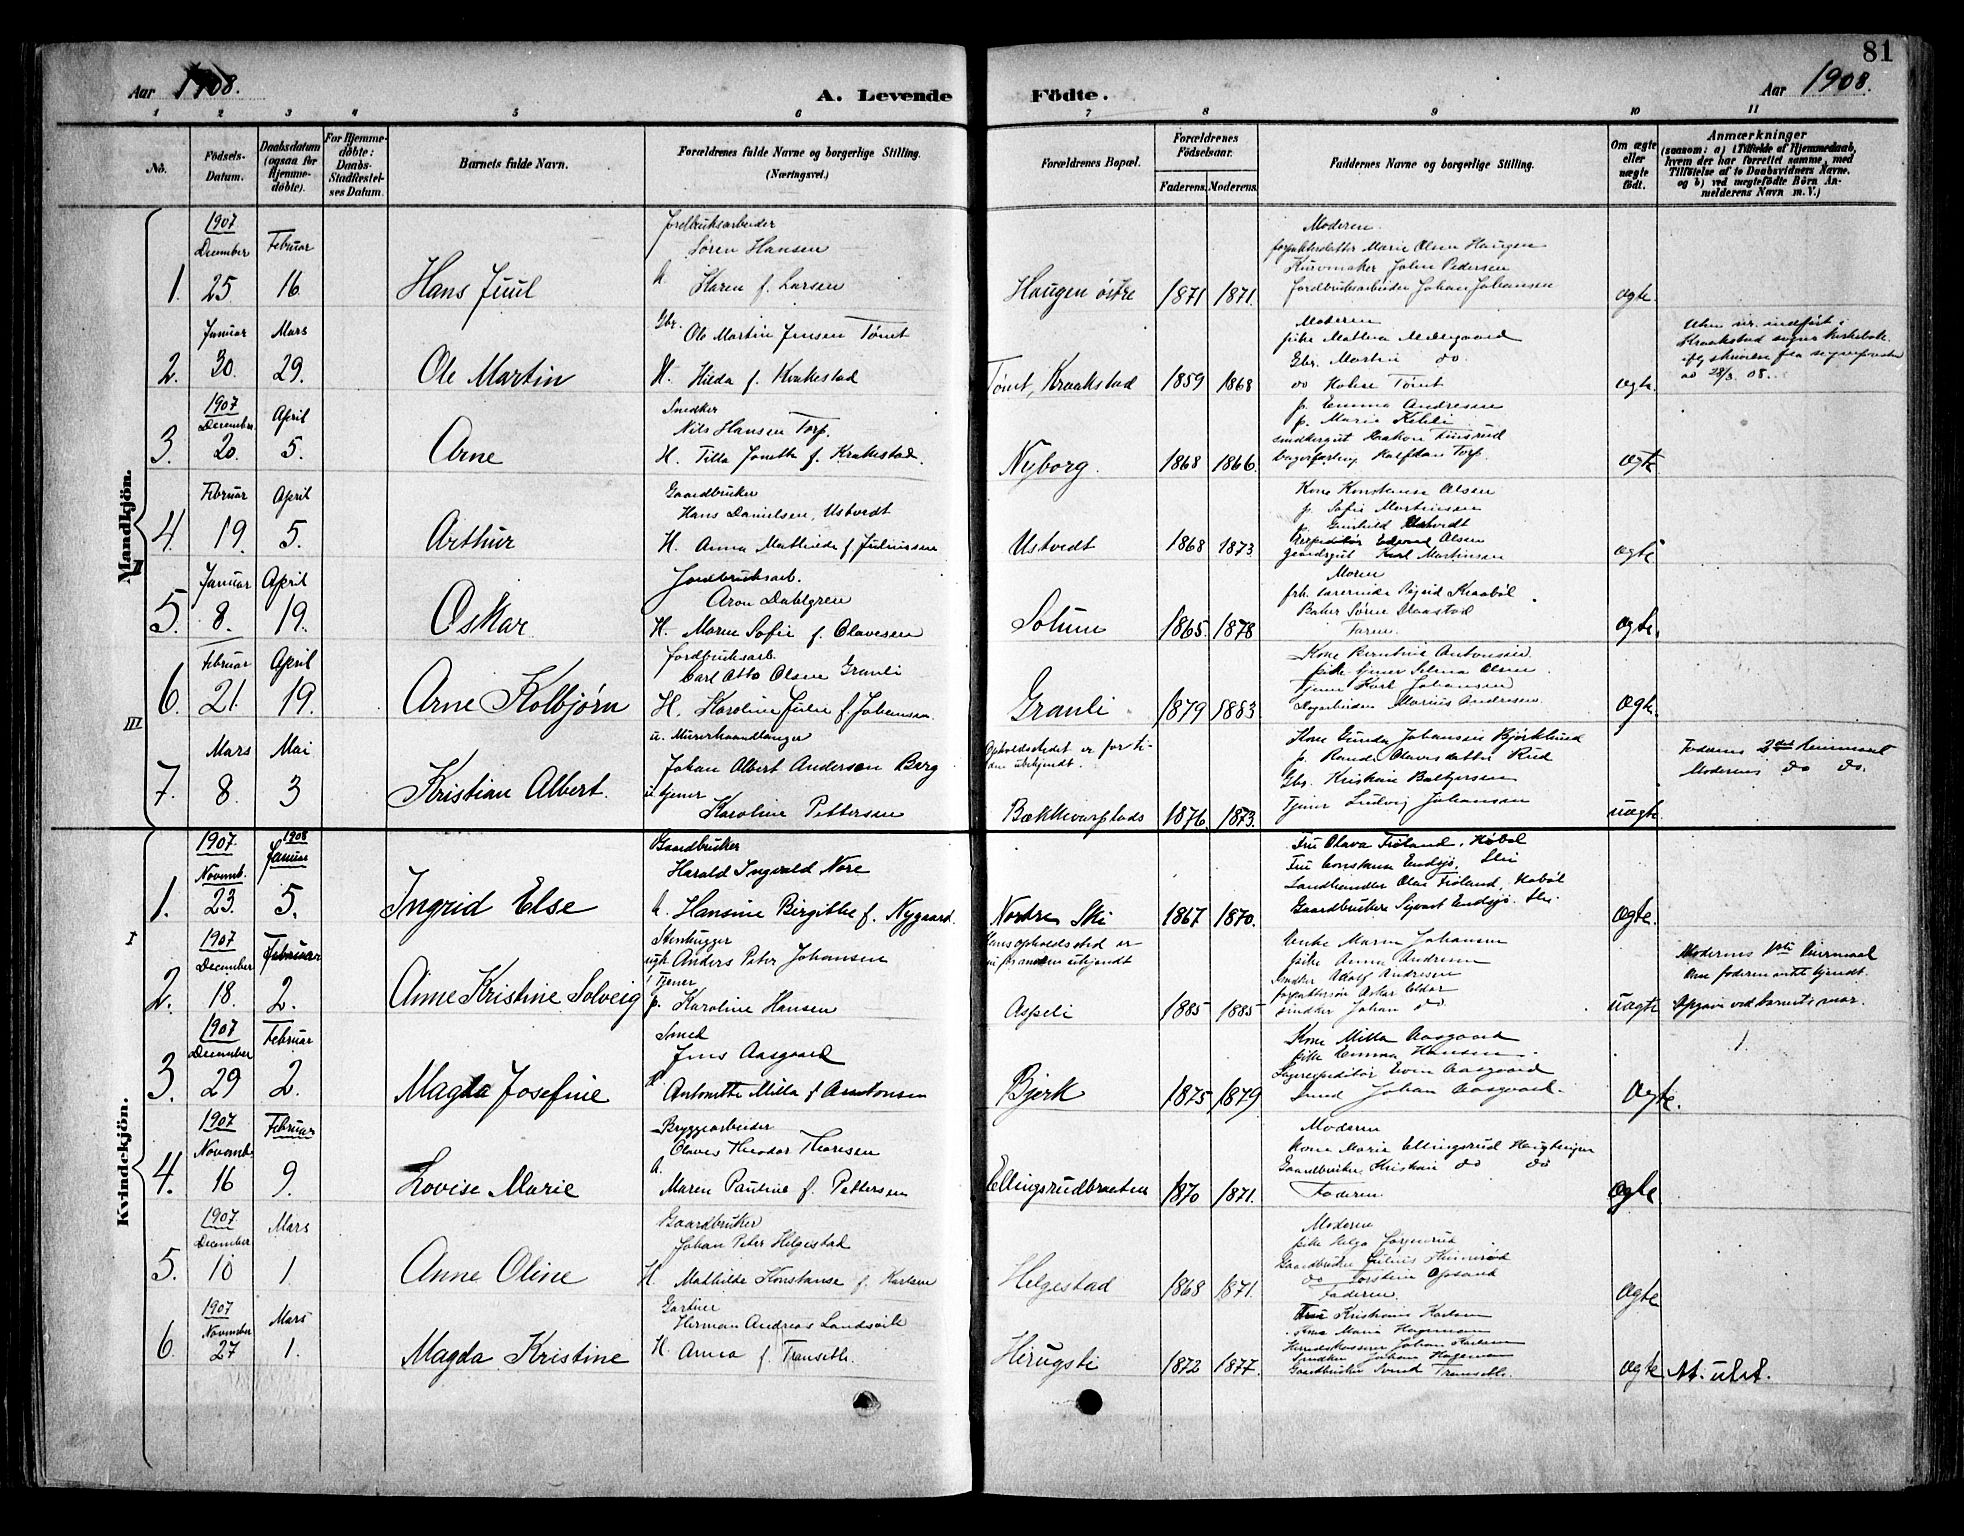 81
Aar 1908.
A. Levende Födte.
Aar 1908.
1 2 3 4 5 6 7 8 9 10 11
No.
Födsels-Datum.
Daabsdatum (ogsaa for Hjemme-döbte).
For Hjemme-döbte: Daabs-Stadfæstel-ses Datum.
Barnets fulde Navn.
Forældrenes fulde Navne og borgerlige Stilling.
(Næringsvei.)
Forældrenes Bopæl.
Forældrenes Födselsaar.
Faderens. Moderens.
Faddernes Navne og borgerlige Stilling.
Om ægte eller uægte födt.
Anmærkninger
(saasom: a) i Tilfælde af Hjemmedaab,
hvem der har forrettet samme, med
Tilföielse af to Daabsvidners Navne.
og b) ved uægtefödte Börn An-
melderens Navn m. V.)
Mandkjön.
III
1907
December Februar
1. 25 16.
Hans Juul
Jordbruksarbeider
Søren Hansen
H. Karen f. Larsen
Haugen østre 1871 1871.
Moderen.
forpakterdatter Marie Olsen Haugen
Kurvmaker John Pedersen
Jordbruksarbeider Johan Johansen
ægte.
Januar Mars
2. 30. 29.
Ole Martin
Gbr.
Ole Martin Jensen Tømt
H. Hilda f. Krakestad
Tømt, Kraakstad 1859 1868
Moderen
Gbr. Martin do.
do Tømt
ægte.
Uten nr. indført i
Kraakstad sogns kirkebok
av 28/3 08.
1907
December April
3. 20. 5.
Arne
Snedker
Nils Hansen Torp.
H. Tilla Jonette f. Krakestad.
Nyborg. 1868 1866.
p. Emma Andresen
p. Marie
Halfdan Torp.
ægte
Februar April
4. 19. 5.
Arthur
Gaardbruker
Hans Danielsen, Ustvedt
H. Anna Mathilde f. Juliussen
Ustvedt 1868 1873
Kone Konstanse Olsen
p. Sofie Martinsen
p. Gunhild Ustvedt
Expeditør Edvard Olsen
gaardsgut Karl Martinsen
ægte
Januar April
5. 8. 19.
Oskar
Jordbruksarb.
Aron Dahlgren
H. Maren Sofie f. Olavesen
Solum 1865. 1878
Moren
Baker Søren
Faren.
ægte.
Februar April
6. 21. 19.
Arne Kolbjørn
Jordbruksarb.
Carl Otto Olsen Granli
H. Karoline Julie f. Johansen.
Granli 1879 1883
Kone Berntine Antonsen
pike tjener Selma Olsen
Tjener Karl Johansen
Marius Andresen
ægte.
Mars Mai
7. 8. 3
Kristian Albert.
u. Murerhaandlanger
Johan Albert Andersen Berg
u. tjener
Karoline Pettersen
Opholdsstedet er for ti-
den ubekjendt.
Bækkevarplads 1876. 1873.
Kone Gunda Johansen Bjørklund
p. Randi Olavesdatter Rud
Gbr. Kristian Baltzersen
Tjener Ludvig Johansen
uægte
Faderens 2det leiermaal
Moderens do do.
Kvindekjön.
I
1907. 1908
Novemb. Januar
1. 23. 5.
Ingrid Else
Gaardbruker
Harald Ingvald Nore
H. Hansine Birgitte f. Nygaard.
Nordre Ski 1867 1870.
Fru Olava Frøland, Høbøl
Fru Constanse Endsjø, Ski
Landhandler Olai Frøland, Høbøl
Gaardbruker Sigvart Endsjø, Ski
ægte.
1907
December Februar
2. 18. 2.
Anne Kristine Solveig
Stenhugger
ugk. Anders Peter Johansen
Tjener
p. Karoline Hansen
Hans opholdssted er
ubekjendt
Aspeli 1885 1885
Enke Maren Johansen
pike Anna Andresen
Snedker Adolf Andresen
Snedker Johan do
uægte
Moderens 1ste leiermaal
Om faderen intet kjendt.
1907
December Februar
3. 29 2.
Magda Josefine
Smed
Jens Aasgaard
H. Antonette Milla f. Arntonsen
Bjerk 1875 1879
Kone Milla Aasgaard
pike Emma Hansen
Lagerexpeditør Even Aasgaard
Smed Johan Aasgaard.
ægte.
1907 Februar
Novemb.
4. 16 9.
Lovise Marie
Bryggearbeider
Olaves Theodor Thoresen
H.
Maren Pauline f. Pettersen
Ellingsrudbraaten 1870 1871.
Moderen
Kone Marie Ellingsrud
Gaardbruker Kristian do do
Faderen.
ægte
1907.
December Mars
5. 10 1
Anne Oline
Gaardbruker
Johan Peter Helgestad
H. Mathilde Konstanse f. Karlsen
Helgestad 1868 1871.
Moderen
pike Helga
Gaardbruker Julius
do Torstein Opsand
Faderen
ægte
1907
November Mars
6. 27 1.
Magda Kristine
Gartner
Herman Andreas Landsvik
H. Anna f. Transeth.
Hirugsti 1872 1877.
Fru Kristiane Karlsen
Fru Maria Hageman
Johan Karlsen
Snedker Johan Hageman
Gaardbruker Transeth.
ægte
At. utst.